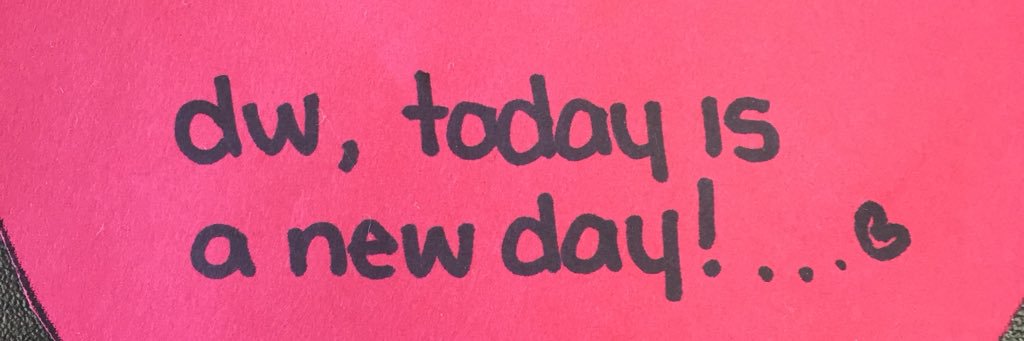 dw, today is
a new day!...♡